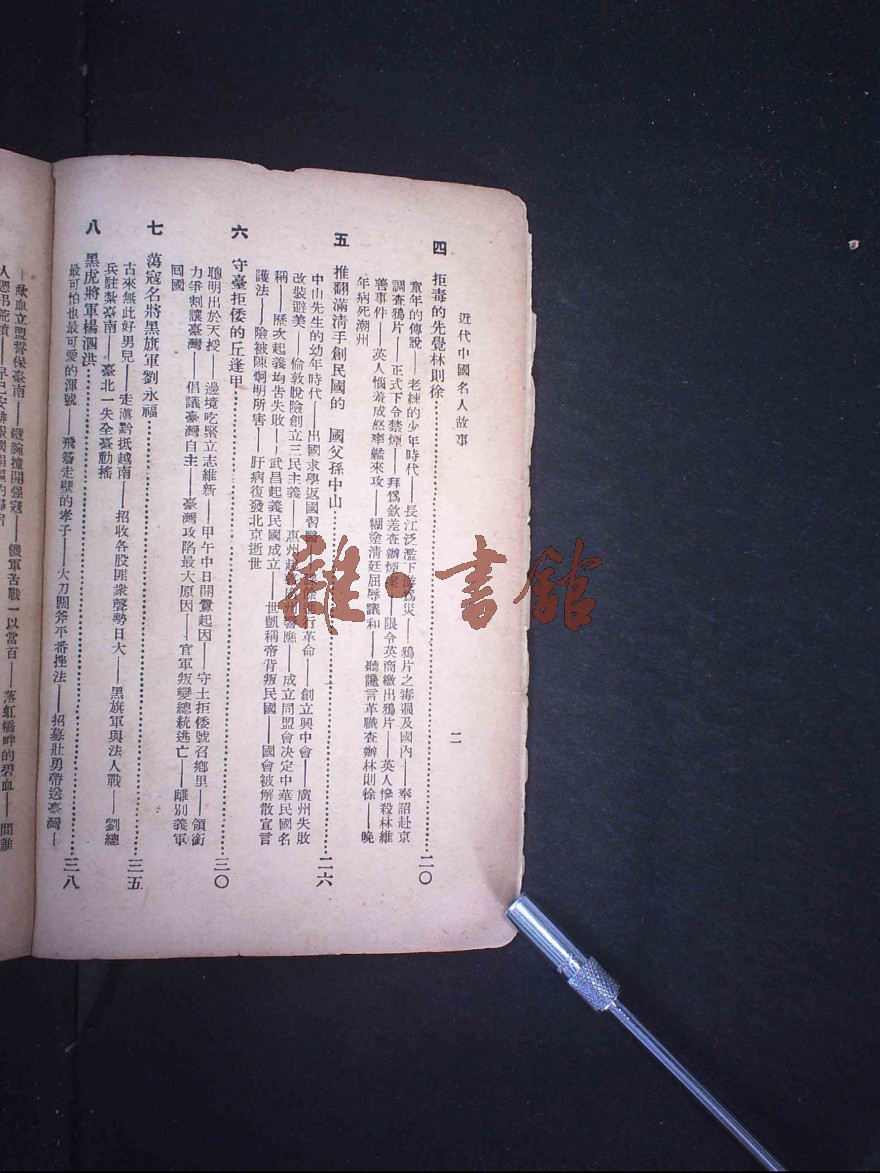 近代中國名人故事
二
四 拒毒的先覺林則徐……二〇
童年的傳說——老練的少年時代——長江泛濫下游爲災——鴉片之毒瀰及國內——奉詔赴京
調查鴉片——正式下令禁煙——拜爲欽差查辦煙案——限令英商繳出鴉片——英人慘殺林維
善事件——英人惱羞成怒率艦來攻——糊塗清廷屈辱議和——聽讒言革職查辦林則徐——晚
年病死潮州
五 推翻滿清手創民國的 國父孫中山……二六
中山先生的幼年時代——出國求學返國習醫——進行革命——創立興中會——廣州失敗
改裝遊美——倫敦脫險創立三民主義——惠州起——響應——成立同盟會決定中華民國名
稱——歷次起義均告失敗——武昌起義民國成立——世凱稱帝背叛民國——國會被解散宣言
護法——險被陳炯明所害——肝病復發北京逝世
六 守臺拒倭的丘逢甲……三〇
聰明出於天授——邊境吃緊立志維新——甲午中日開釁起因——守土拒倭號召鄉里——領銜
力爭割讓臺灣——倡議臺灣自主——臺灣攻陷最大原因——官軍叛變總統逃亡——離別義軍
囘國
七 蕩寇名將黑旗軍劉永福……三五
古來無此好男兒——走滇黔抵越南——招收各股匪衆聲勢日大——黑旗軍與法人戰——劉總
兵駐紮臺南——臺北一失全臺動搖
八 黑虎將軍楊泗洪……三八
最可怕也最可愛的渾號——飛簷走壁的孝子——大刀闊斧平番挫法——招募壯勇帶送臺灣—
—歃血立盟誓保臺南——鐵腕撞開强寇——饑軍苦戰一以當百——落虹橋畔的碧血——問誰
雜·書館